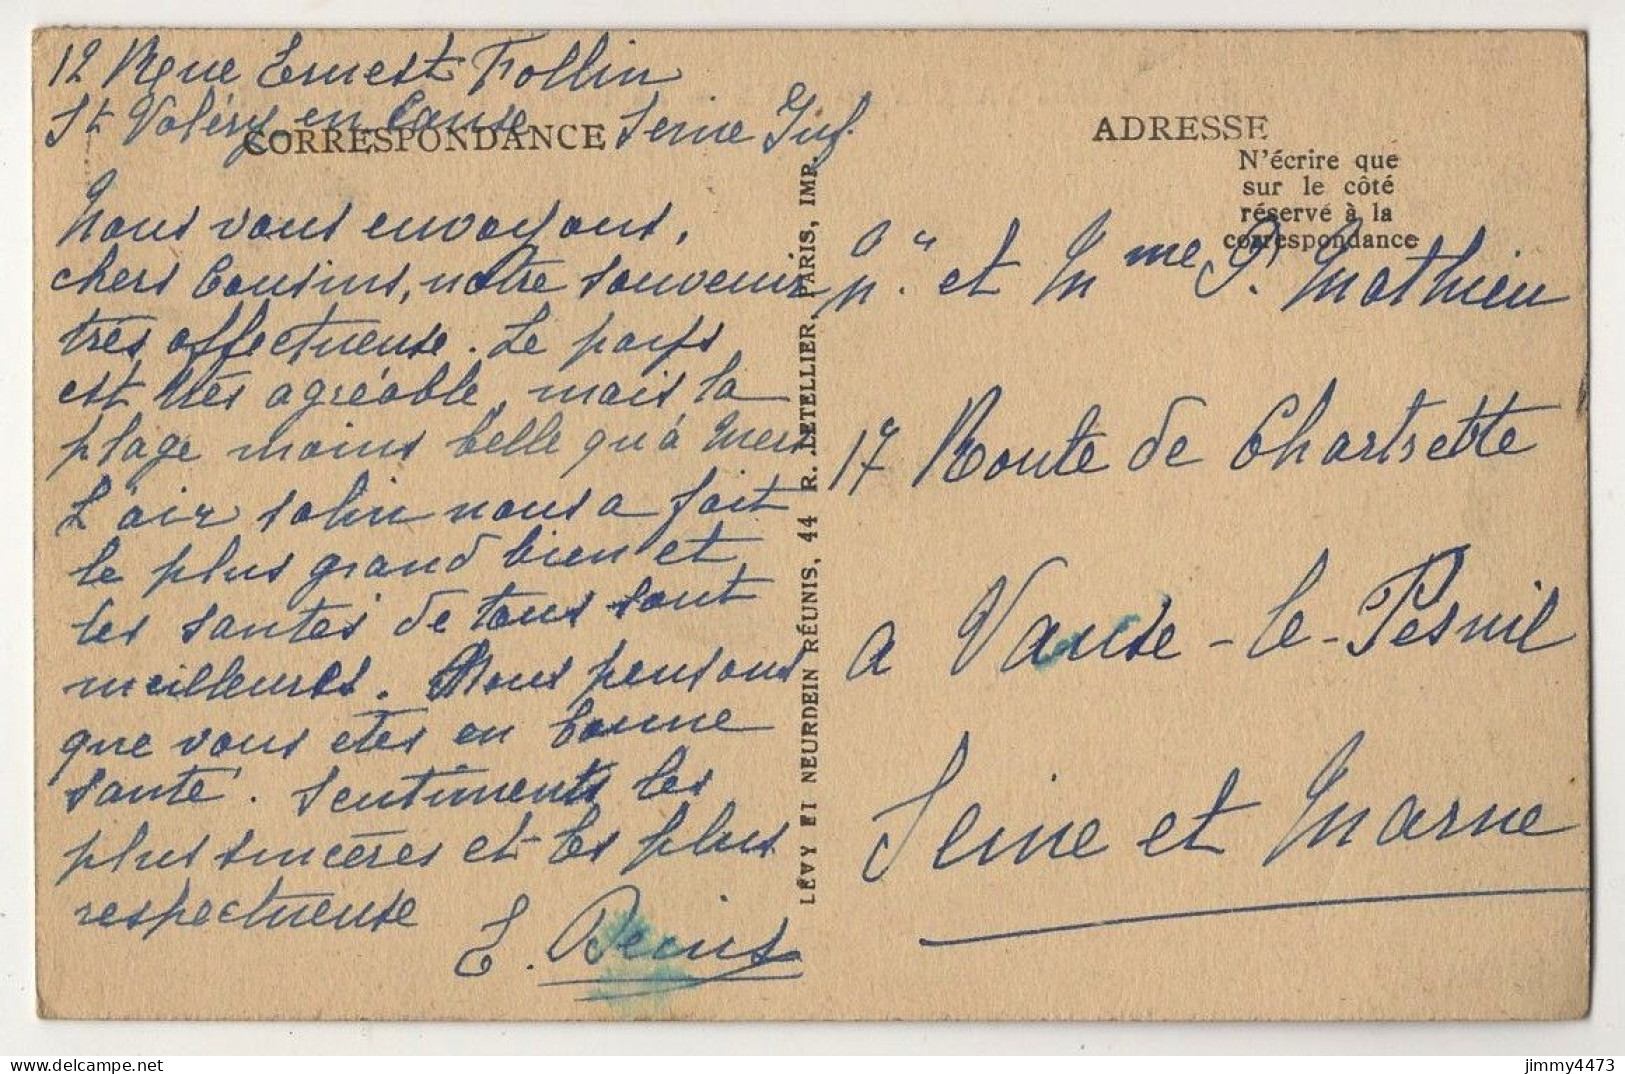 12 Rue Ernest Follin
St Valéry en Cause Seine Inf.
CORRESPONDANCE
Nous vous envoyons,
chers Cousins, notre souvenir
très affectueuse. Le pays
est très agréable, mais la
plage moins belle qu'à Mers
L'air salin nous a fait
le plus grand bien et
les santés de tous sont
meilleures. Nous pensons
que vous êtes en bonne
santé. Sentiments les
plus sincères et les plus
respectueuse
E. Denis
LÉVY ET NEURDEIN RÉUNIS, 44 R. LETELLIER, PARIS, IMP.
ADRESSE
N'écrire que
sur le côté
réservé à la
correspondance
et Mme P. Mathieu
17 Route de Chartrette
a Vause-le-Pesnil
Seine et Marne
jimmy4473